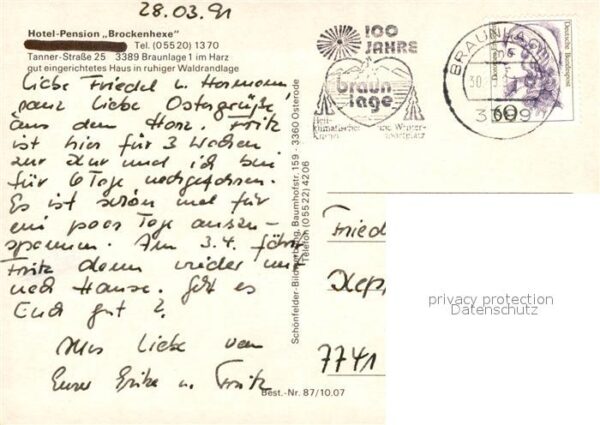 28.03.91
Hotel-Pension „Brockenhexe"
Tel. (05520) 1370
Tanner-Straße 25 3389 Braunlage 1 im Harz
gut eingerichtetes Haus in ruhiger Waldrandlage
Liebe Friedel u. Hermann,
ganz liebe Ostergrüße
aus dem Harz. Fritz
ist hier für 3 Wochen
zur Kur und ich bin
für 6 Tage nachgefahren.
Es ist schön mal für
ein paar Tage auszu-
spannen. Am 3.4. fährt
Fritz dann wieder mit
nach Hause. Geht es
Euch gut?
Alles Liebe von
Eure Erika u. Fritz
Schönfelder-Bildwerbung, Baumhofstr. 159 · 3360 Osterode
Telefon (05522) 4206
Best.-Nr. 87/10.07
100
JAHRE
braun
lage
Heil-
klimatischer
Winter-
BRAUNLAGE
30
3389
Deutsche Bundespost
60
Friede
7741
privacy protection
Datenschutz